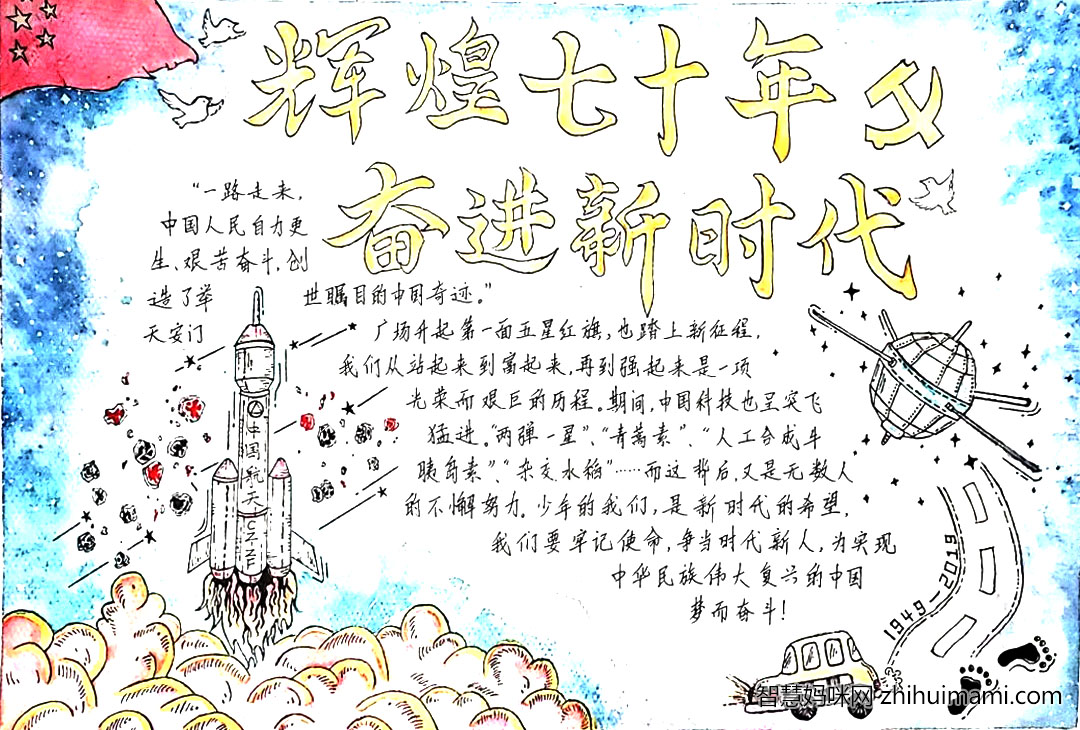 辉煌七十年
奋进新时代
“一路走来，
中国人民自力更
生、艰苦奋斗，创
造了举世瞩目的中国奇迹。”
天安门广场升起第一面五星红旗，也踏上新征程，
我们从站起来到富起来，再到强起来是一项
光荣而艰巨的历程。期间，中国科技也呈突飞
猛进。“两弹一星”、“青蒿素”、“人工合成牛
胰岛素”、“杂交水稻”……而这背后，又是无数人
的不懈努力。少年的我们，是新时代的希望，
我们要牢记使命，争当时代新人，为实现
中华民族伟大复兴的中国
梦而奋斗！
中国航天
CZ-2F
1949-2019
智慧妈咪网-zhihuimami.com